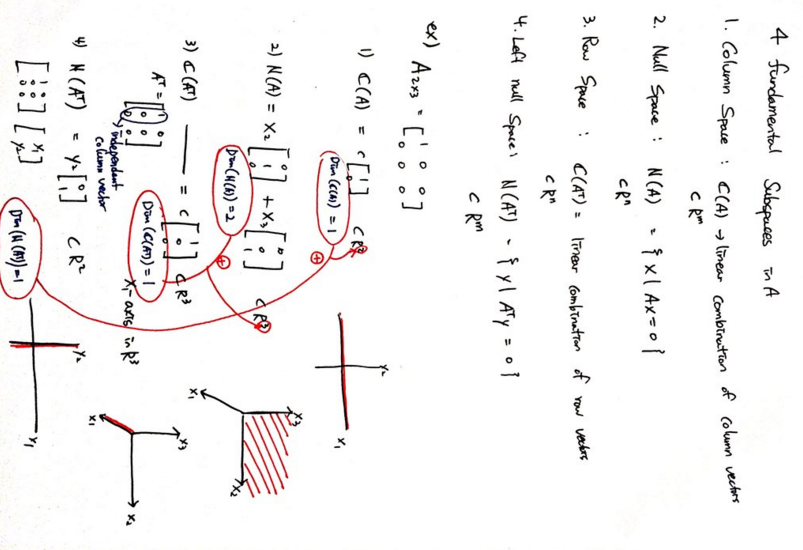 4 fundamental Subspaces in A
1. Column Space : C(A) → linear combination of column vectors
⊂ Rᵐ
2. Null Space : N(A) = { x | Ax = 0 }
⊂ Rⁿ
3. Row Space : C(Aᵀ) = linear combination of row vectors
⊂ Rⁿ
4. Left null Space : N(Aᵀ) = { y | Aᵀy = 0 }
⊂ Rᵐ
ex) A₂ₓ₃ = [1 0 0; 0 0 0]
1) C(A) = c [1; 0] ⊂ R²
Dim(C(A)) = 1
x₂
x₁
2) N(A) = x₂ [0; 1; 0] + x₃ [0; 0; 1] ⊂ R³
Dim(N(A)) = 2
x₁ x₃ x₂
3) C(Aᵀ) = c [1; 0; 0] ⊂ R³
Aᵀ = [1 0; 0 0; 0 0]
independent
column vector
Dim(C(Aᵀ)) = 1
x₁-axis in R³
x₁ x₃ x₂
4) N(Aᵀ) = y₂ [0; 1] ⊂ R²
[1 0; 0 0; 0 0] [y₁; y₂]
Dim(N(Aᵀ)) = 1
y₂
x₁